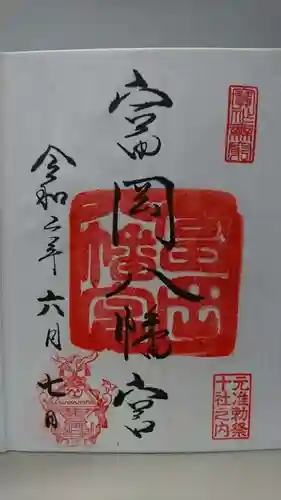 富岡八幡宮
令和二年六月七日
元准勅祭
十社之内